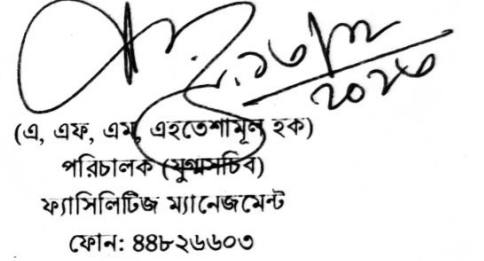 ২০২৩
(এ, এফ, এম, এহতেশামূল হক)
পরিচালক (যুগ্মসচিব)
ফ্যাসিলিটিজ ম্যানেজমেন্ট
ফোন: ৪৪৮২৬৬০৩